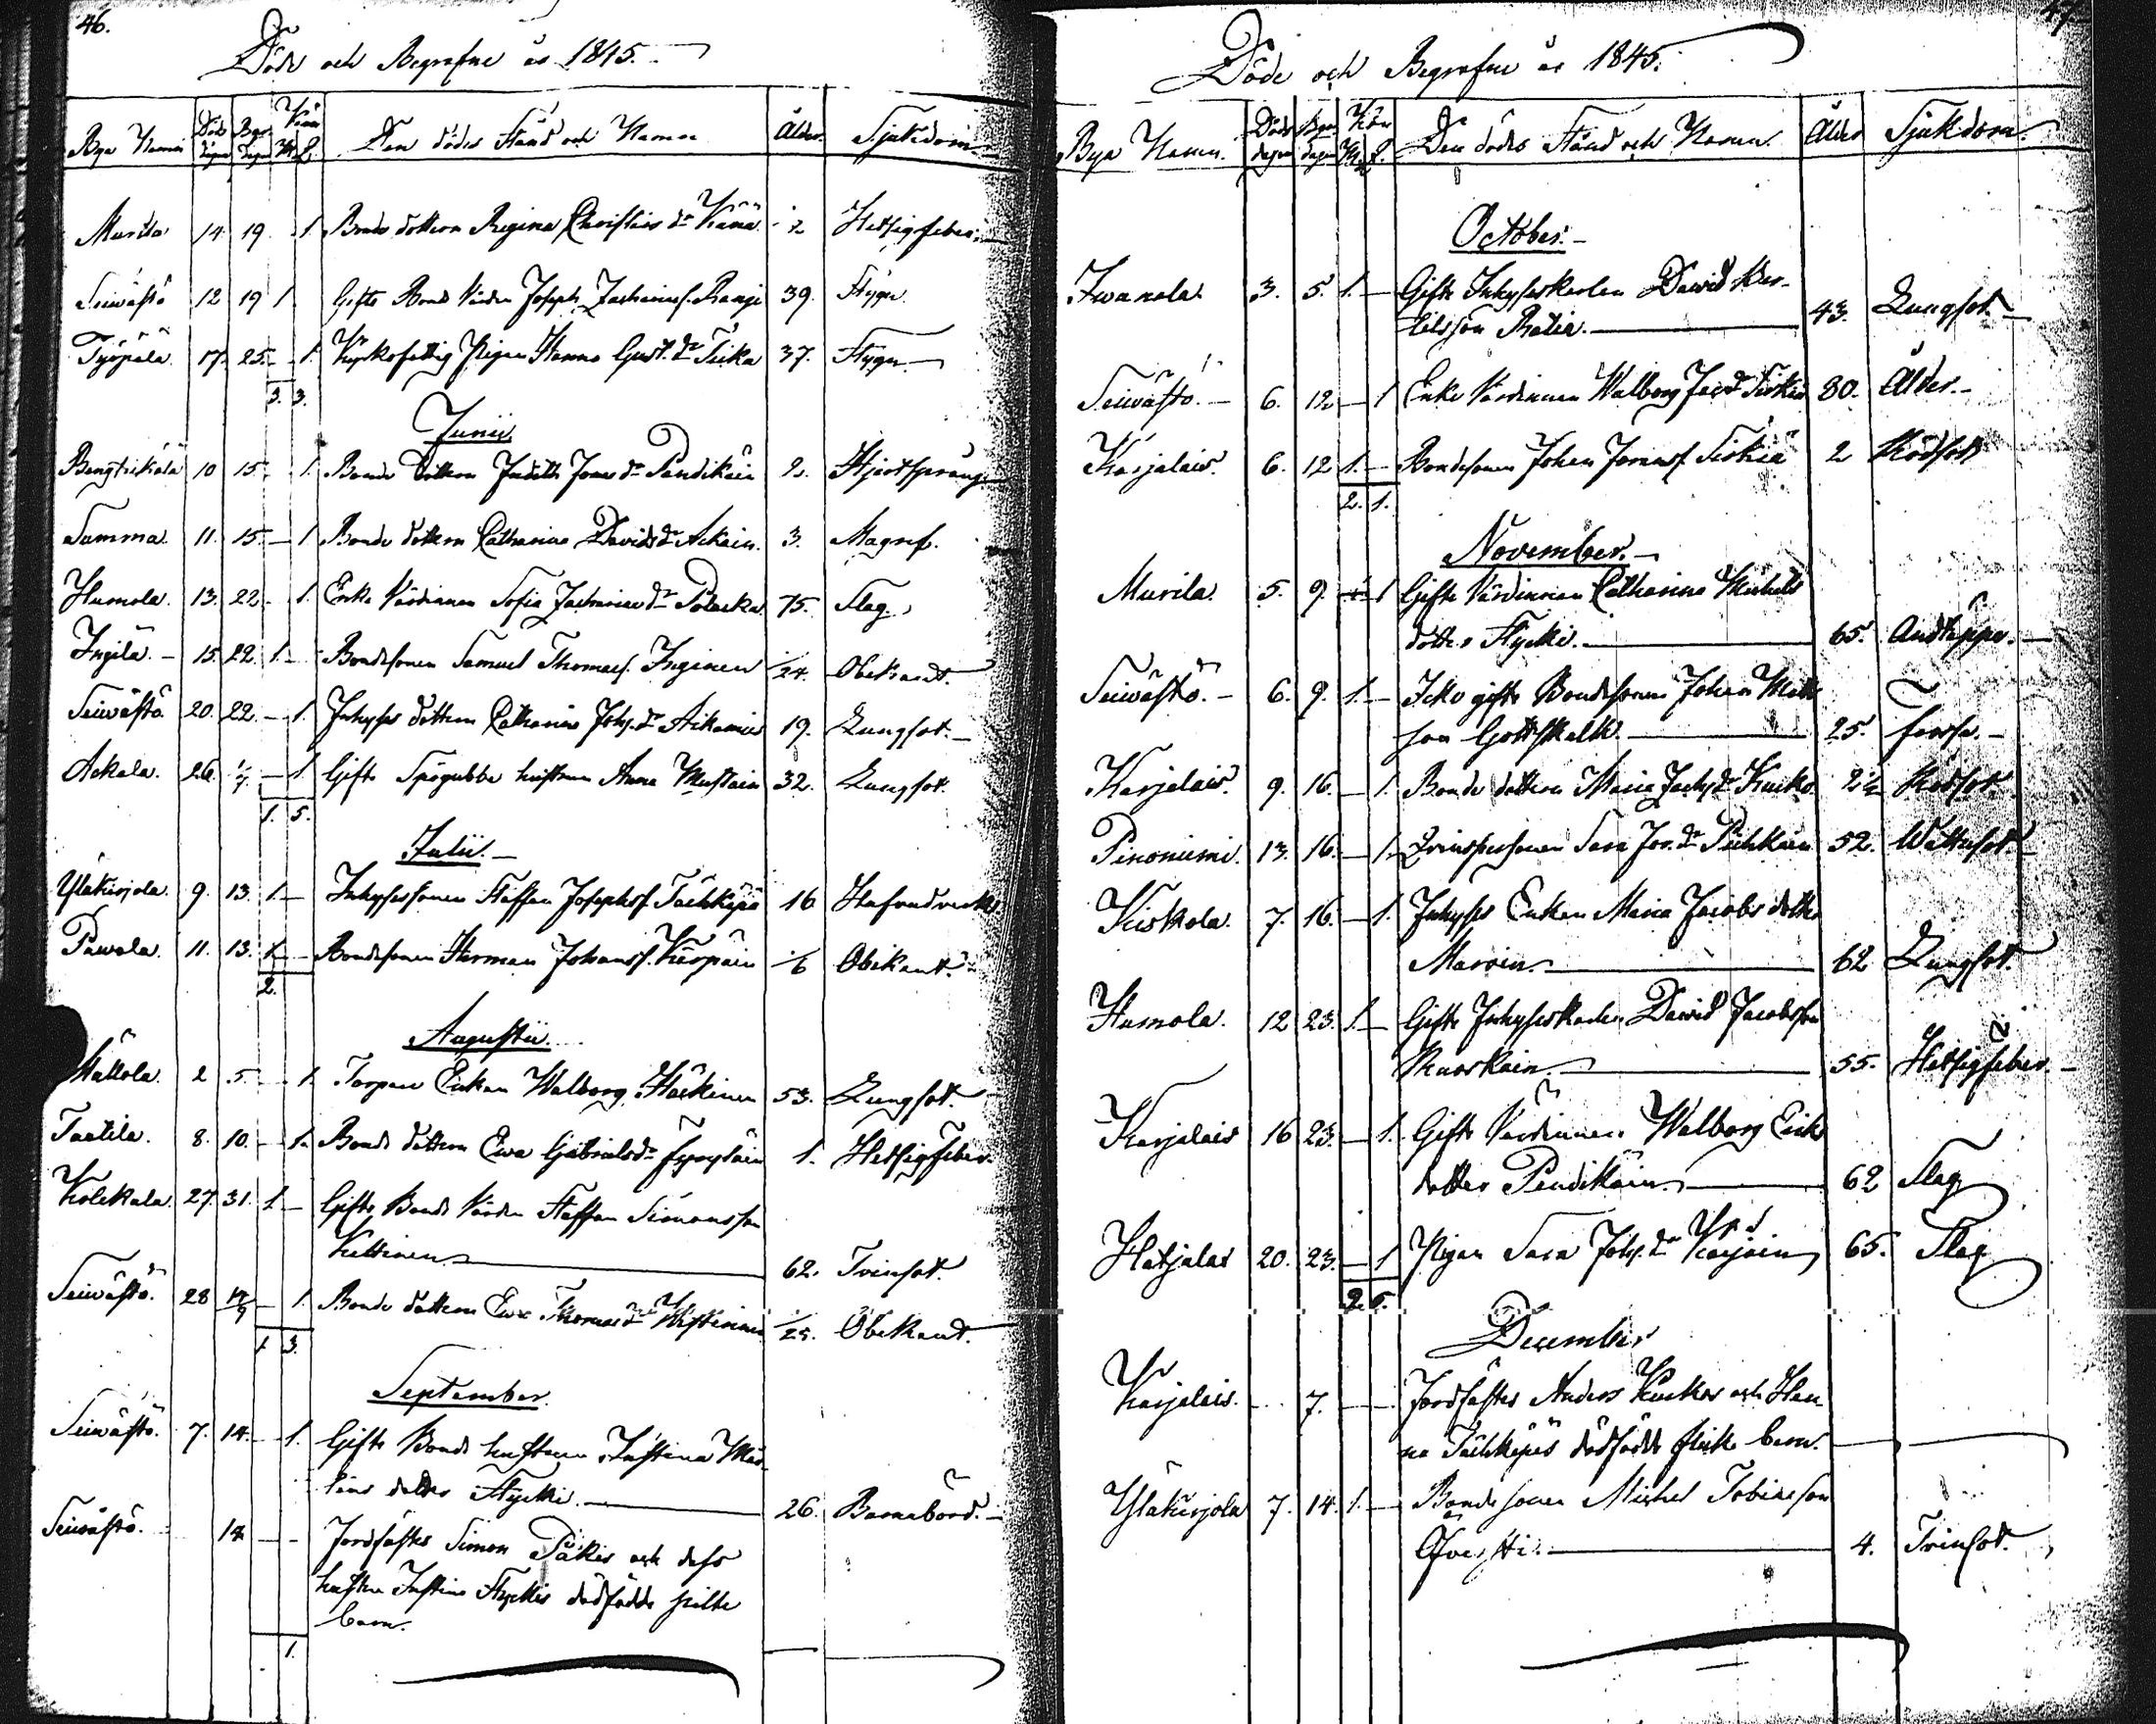 46.
Döde och Begrafne år 1845.
Bya Namn Döds dagen Begr. dagen Kön M. Q. Den dödes Stånd och Namn Ålder. Sjukdom.
Murila 14 19 1. Bonde dottern Regina Christiers dr 2 Hetsigfeber.
Seivästö 12 19 1 Gifte Bond Värden Joseph Zachariæs. 39. Stygn.
Työpälä 17. 25. – 1. Kyrkofattig Pigan Hanna Gust. dr Sirka 37. Stygn
3. 3.
Junii.
Bengtsikälä 10 15. – 1. Bonde dottern Judith Jons dr Pändikäin 2. Hjertsprång
Samma. 11. 15. – 1 Bonde dottern Catharina Davids dr Ackain. 3. Magref.
Humola. 13. 22 – 1. Enke Värdinnan Sofia Zachariæ dr 75. Slag.
Ingilä. – 15. 22. 1. – Bondesonen Samuel Thomass. Inginen 1/24. Obekandt.
Seivästö. 20. 22. – 1. Inhyses dottern Catharina Joh. dr 19. Lungsot.
Ackala. 26. 1/7. – 1. Gifte Spögubbe hustrun Anna Mustain 32. Lungsot.
1. 5.
Julii. –
Yläkirjola. 9. 13. 1. – Inhysessonen Staffan Josephss. Tächkäpä 16
Pawola. 11. 13. 1. – Bondesonen Herman Johanss. Kärpäin 1/6 Obekant.
2.
Augustii.
Mättölä. 2 5. – 1. Torpare Enkan Walborg Häckinen 53. Lungsot.
Taatila. 8. 10. – 1. Bonde dottern Ewa Gabriels dr 1. Hetsigfeber.
Kolckala. 27. 31. 1. – Gifte Bonde Värden Staffan Simonsson
Kettinen 62. Tvinsot.
Seivästö. 28 14/9 – 1. Bonde dottern Ewa Thomæ dr 1/25. Obekandt.
1. 3.
September.
Seivästö. 7. 14. – 1. Gifte Bonde hustrun Justina Mår-
tens dotter Stycki. 26. Barnabörd. –
Seivästö. 14 – – Jordfästes Simon Päkis och dess
hustru Justina Styckis dödfödde pilte
barn.
1.
47
Döde och Begrafne år 1845.
Bya Namn. Döds dagen Begr. dagen Kön M. Q. Den dödes Stånd och Namn. Ålder Sjukdom.
October. –
Iwanala. 3. 5. 1. – Gifte Inhyseskarlen David Ber-
tilsson Ratia. 43. Lungsot. –
Seivästö. – 6. 12 – 1 Enke Värdinnan Walborg Jac. dr Sirkiä 80. Ålder. –
Karjalais. 6. 12 1. – Bondesonen Johan Jonass. Sirkiä 2 Rödsot
2. 1.
November. –
Murila. 5. 9. – 1 Gifte Värdinnan Catharina Michels
dotter Stycki. 65. Andtäppa. –
Seivästö. – 6. 9. 1. – Icke gifte Bondesonen Johan Matts
son Gottskalk. 25. Frossa. –
Karjalais. 9. 16. – 1. Bonde dottern Maria Zach. dr Kucko. 2 1/2 Rödsot.
Pinoniemi. 13. 16. – 1. Sara Joh. dr Pichkain 52. Wattusot. –
Kiskola. 7. 16. – 1. Inhyses Enkan Maria Jacobs dotter
Marain. 62 Lungsot.
Humola. 12 23. 1. – Gifte Inhyseskarlen David Jacobsson
Ruoskain. 55. Hetsigfeber. –
Karjalais 16 23. – 1. Gifte Värdinnan Walborg Eriks
dotter Pendikäin. 62 Slag
Hatjalax 20. 23. – 1 Pigan Sara Joh. dr Karjain 65. Slag
2. 6.
December
Karjalais. 7. – – Jordfästes Anders Kuckos och Han
na Tächkäpäs dödfödde flicke barn.
Yläkirjola 7. 14. 1. – Bonde sonen Michel Tobiæson
Öfversti. 4. Tvinsot.